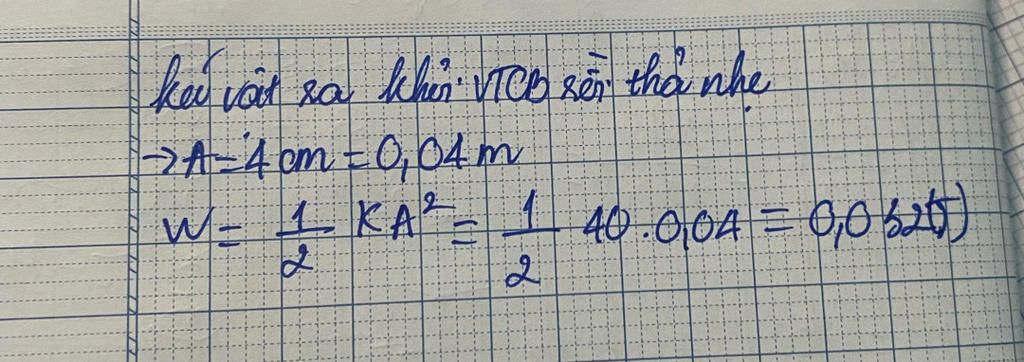 kéo vật ra khỏi VTCB rồi thả nhẹ
→ A = 4 cm = 0,04 m
W = 1/2 KA² = 1/2 40.0,04 = 0,032(J)